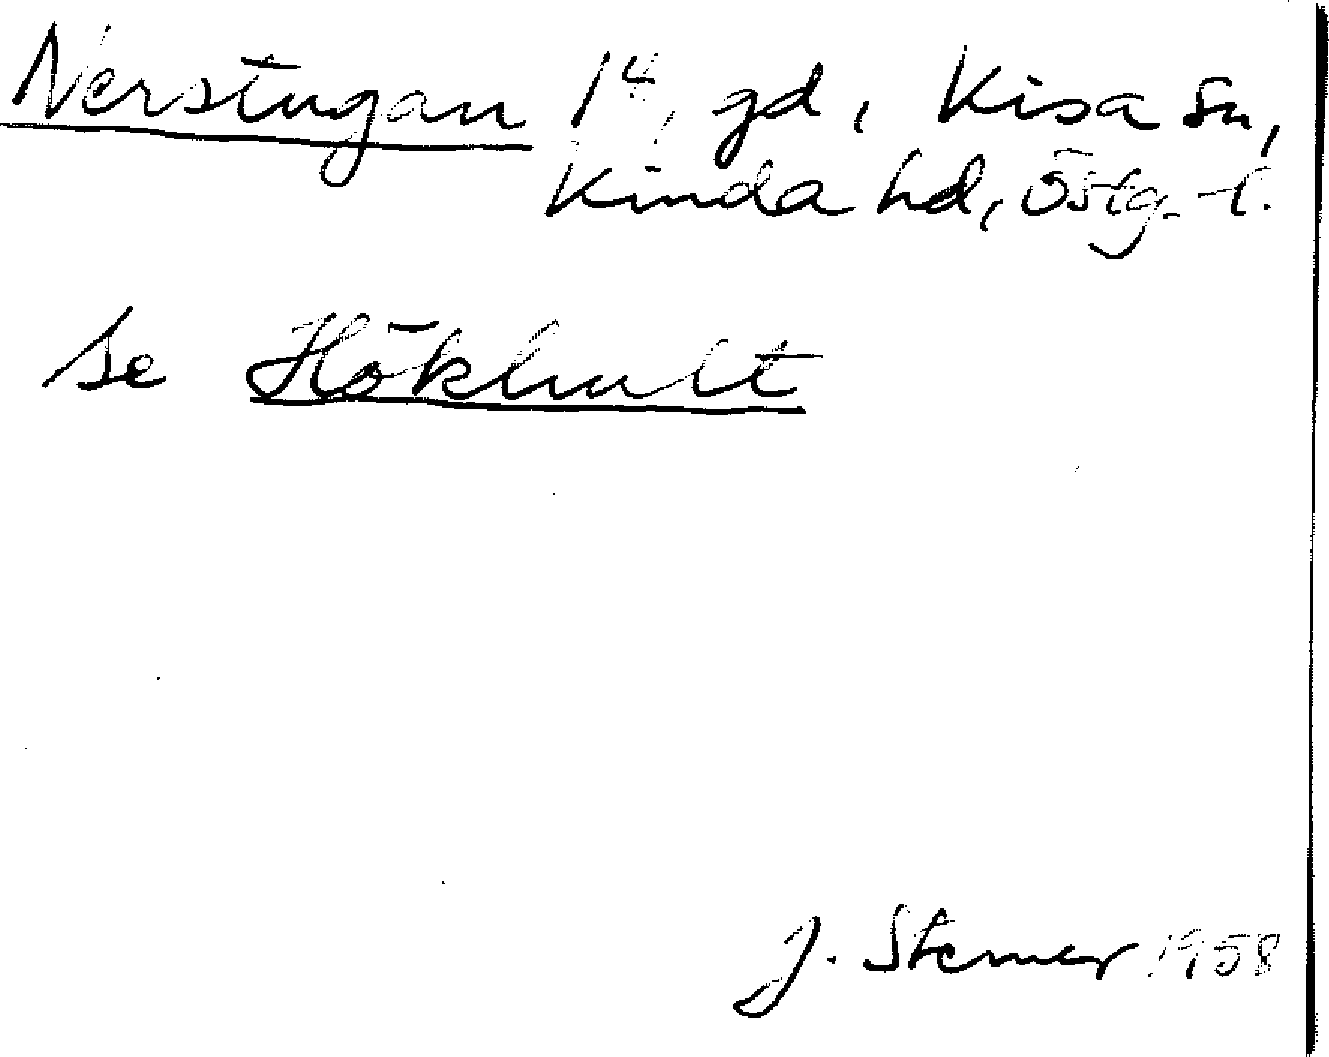 Nerstugan 1⁴, gd, Kisa sn,
Kinda hd, Östg. l.
se Hökhult
J. Sterner 1958